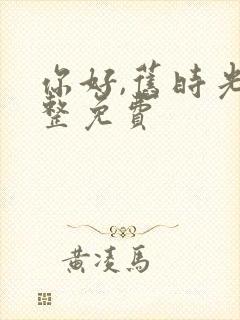 你好,舊時光
整免費
黄凌馬